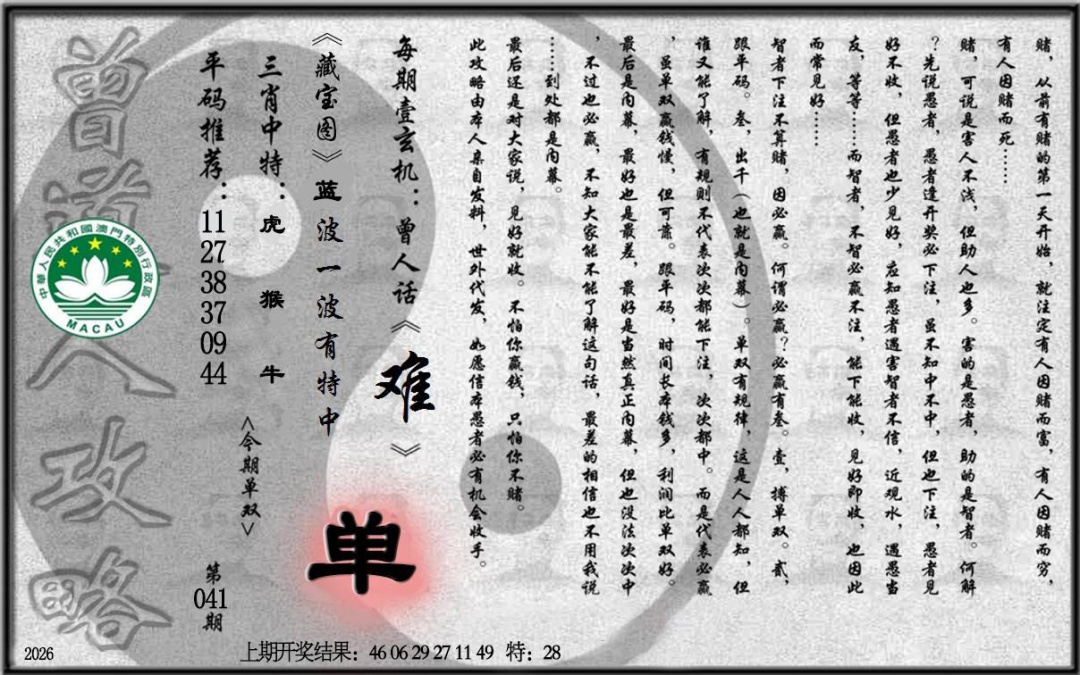 赌，从前有赌的第一天开始，就注定有人因赌而富，有人因赌而穷，
有人因赌而死……
赌，可说是害人不浅，但助人也多。害的是愚者，助的是智者。何解
？先说愚者，愚者逢开奖必下注，虽不知中不中，但也下注，愚者见
好不收，但愚者也少见好，应知愚者遇害智者不信，近观水，遇愚当
友，等等……而智者，不智必赢不注，能下能收，见好即收，也因此
而常见好……
智者下注不算赌，因必赢。何谓必赢？必赢有叁。壹，搏单双。贰，
跟单码。叁，出千（也就是内幕）。单双有规律，这是人人都知，但
谁又能了解，有规则不代表次次都能下注，次次都中。而是代表必赢
，虽单双赢钱慢，但可靠。跟单码，时间长本钱多，利润比单双好。
最后是内幕，最好也是最差，最好是当然真正内幕，但也没法次次中
，不过也必赢，不知大家能不能了解这句话，最差的相信也不用我说
……到处都是内幕。
最后还是对大家说，见好就收。不怕你赢钱，只怕你不赌。
此攻略由本人亲自发料，世外代发，如愿信本愚者必有机会收手。
每期壹玄机：曾人话《难》
《藏宝图》蓝波一波有特中
单
三肖中特：虎 猴 牛
<今期单双>
平码推荐：11 27 38 37 09 44
第041期
曾道人攻略
中華人民共和國澳門特別行政區
MACAU
2026
上期开奖结果：46 06 29 27 11 49 特：28